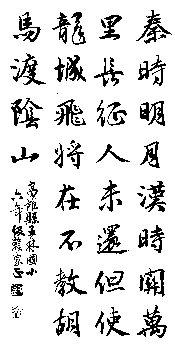 秦時明月漢時關萬
里長征人未還但使
龍城飛將在不教胡
馬渡陰山
高雄縣五林國小
六年級蔡家正